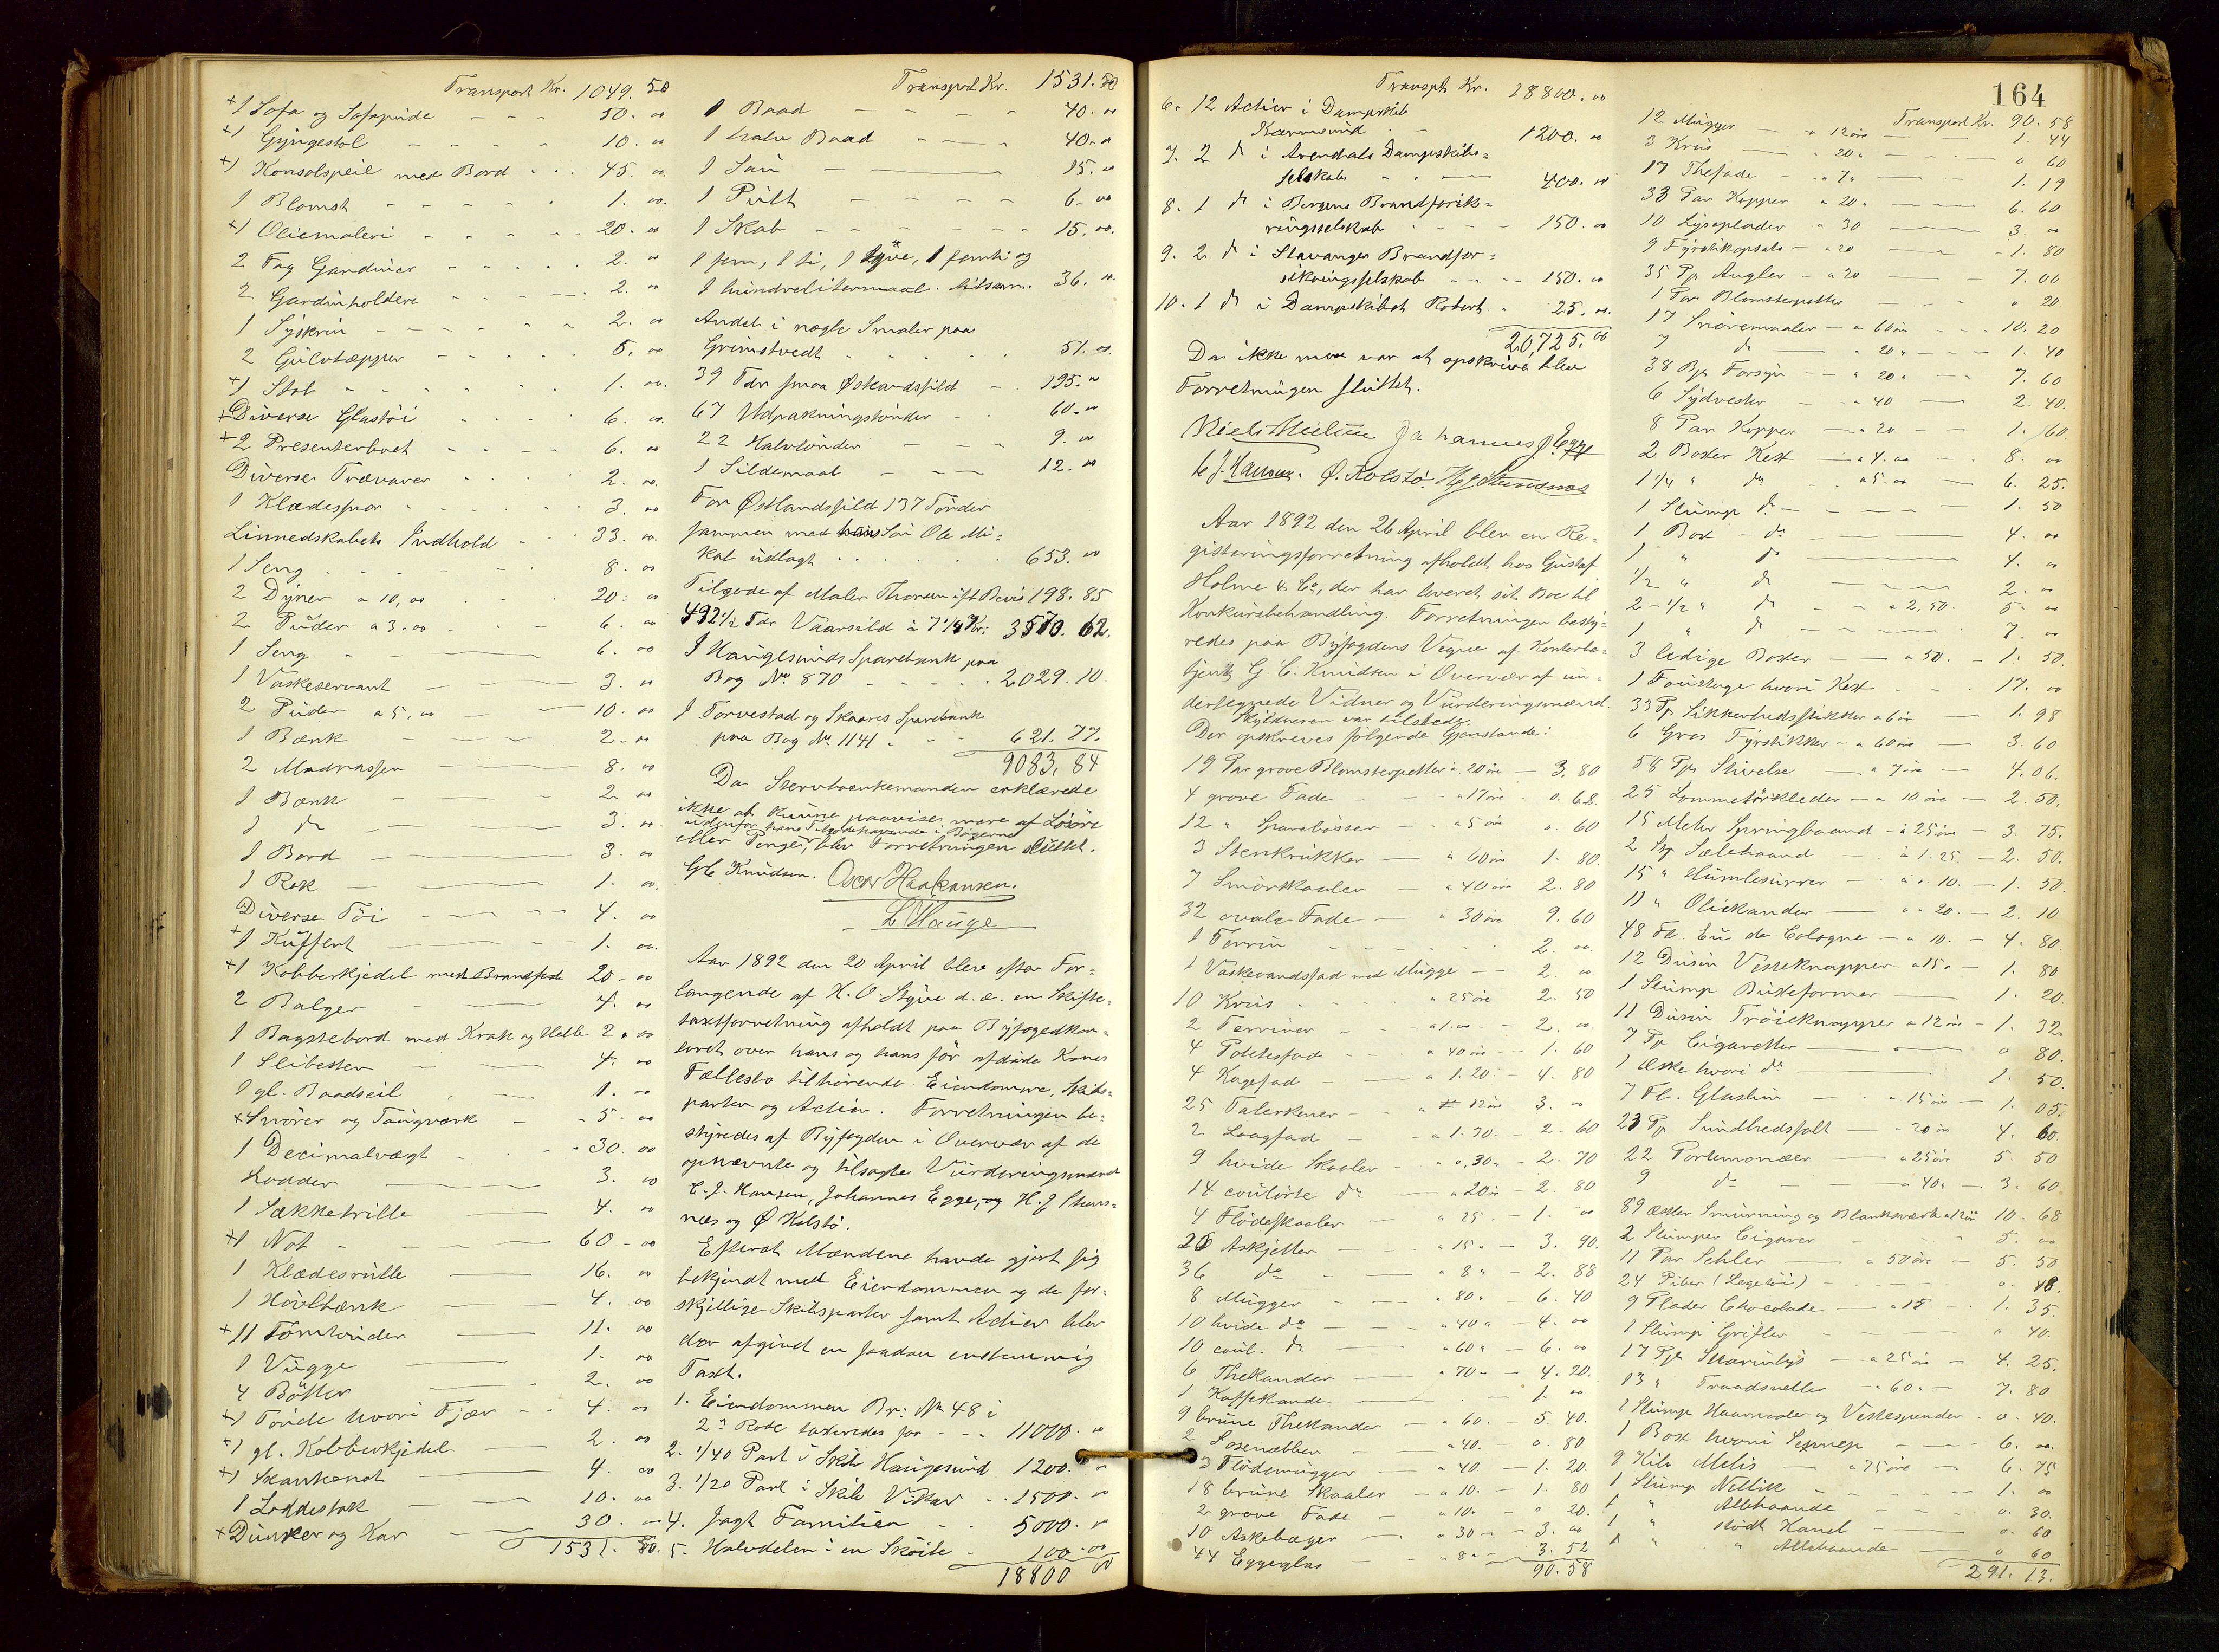 Transport Kr. 1049. 50
+1 Sofa og Sofapude - - - 50. 00
+1 Gyngestol - - - - 10. 00
+1 Konsolspeil med Bord - - - 45. 00
1 Blomst - - - - - 1. 00
+1 Oliemaleri - - - - 20. 00
2 Fag Gardiner - - - - 2. 00
2 Gardinholdere - - - - 2. 00
1 Syskrin - - - - - 2. 00
2 Gulvtæpper - - - - 5. 00
+1 Stol - - - - - 1. 00
+Diverse Glastöi - - - 6. 00
+2 Presenterbret - - - - 6. 00
Diverse Trævarer - - - - 2. 00
1 Klædessnor - - - - 3. 00
Linnedskabets Indhold - - 33. 00
1 Seng - - - - - 8. 00
2 Dyner a 10,00 - - - 20. 00
2 Puder a 3.00 - - - 6. 00
1 Seng - - - 6. 00
1 Vaskeservant - - 3. 00
2 Puder a 5,00 - - 10. 00
1 Bænk - - - 2. 00
2 Madrasser - - - 8. 00
1 Bænk - - - 2. 00
1 do - - - 3. 00
1 Bord - - - 3. 00
1 Rok - - - 1. 00
Diverse Töi - - - 4. 00
+1 Kuffert - - - 1. 00
+1 Kobberkjedel med Brandfad 20. 00
2 Balger - - 4. 00
1 Bagstebord med Krak og Helle 2. 00
1 Slibesten - - 4. 00
1 gl. Baadseil - - 1. 00
+Snörer og Taugværk - - 5. 00
1 Decimalvægt - - - 30. 00
Lodder - - 3. 00
1 Sækketrille - - 4. 00
+1 Not - - - 60. 00
1 Klædesrulle - - 16. 00
1 Hövlbænk - - 4. 00
+11 Tomtönder - - 11. 00
1 Vugge - - 1. 00
4 Bötter - - 2. 00
+1 Tönde hvori Tjær - - 4. 00
+1 gl. Kobberkjedel - - 2. 00
+1 - - 4. 00
1 - - 10. 00
+Dunker og Kar - - 30. 00
1531. 50.
Transport Kr. 1531. 50
1 Baad - - - 40. 00
1 halv Baad - - - 40. 00
1 Sau - - - 15. 00
1 Pult - - - - 6. 00
1 Skab - - - - 15. 00
1 fem, 1 ti, 1 tyve, 1 femti og
1 hundrelitermaal. tilsam. 36. 00
Andel i nogle Smaler paa
Grimstvedt - - - - 51. 00
39 Tdr smaa Østlandssild - - 195. 00
67 Udpakningstönder - - 60. 00
22 Halvtönder - - - 9. 00
1 Sildemaal - - - 12. 00
For Østlandssild 137 Tönder
sammen med Sön Ole Mi=
kal udlagt - - - - 653. 00
Tilgode af Maler Thorsen ift Bevis 198. 85
492 1/2 Tdr Vaarsild à 7 1/4 Kr: 3570. 62.
I Haugesunds Sparebank paa
Bog No 870 - - - - 2029. 10.
I Torvestad og Skaares Sparebank
paa Bog No 1141. - - 621. 77.
9083, 84
Da Stervboenkemanden erklærede
ikke at kunne paavise mere af Lösöre
udenfor hans Tilgodehavende i Bögerne
eller Penge, blev Forretningen sluttet.
G. C. Knudsen. Oscar Haakansen.
L Hauge
Aar 1892 den 20 April blev efter For=
langende af H. O. Styve d. æ. en Skifte=
taxtforretning afholdt paa Byfogedkon=
toret over hans og hans för afdöde Kones
Fællesbo tilhörende Eiendomme, Skibs=
parter og Actier. Forretningen be=
styredes af Byfogden i Overvær af de
opnævnte og tilsagte Vurderingsmænd
C. J. Hansen, Johannes Egge, og H. J. Stens=
næs og Ø Kolstö.
Efterat Mændene havde gjort sig
bekjendt med Eiendommen og de for=
skjellige Skibsparter samt Actier blev
der afgivet en saadan enstemmig
Taxt.
1. Eiendommen Br: No 48 i
2den Rode taxeredes for - - - 11000. 00
2. 1/40 Part i Skib Haugesund 1200. 00
3. 1/20 Part i Skib Vikar - - 1500. 00
4. Jagt Familien - - 5000. 00
5. Halvdelen i en Sköite - 100. 00
18800 00
Transpt Kr. 18800. 00
6. 12 Actier i Dampskib
Karmsund - - 1200. 00
7. 2 do i Arendals Dampskibs=
selskab - - - 400. 00
8. 1 do i Bergens Brandforsik=
ringsselskab - - - 150. 00
9. 2 do i Stavanger Brandfor=
sikringsselskab - - - 150. 00
10. 1 do i Dampskibet Robert - 25. 00.
20,725. 00
Da ikke mere var at opskrive blev
Forretningen sluttet.
Johannes J. Egge
C J. Hansen. Ø. Kolstö. H J Stensnæs
Aar 1892 den 26 April blev en Re=
gistreringsforretning afholdt hos Gustaf
Holme & Co, der har leveret sit Boe til
Konkursbehandling. Forretningen besty=
redes paa Byfogdens Vegne af Kontorbe=
tjent G. C. Knudsen i Overvær af un=
dertegnede Vidner og Vurderingsmænd.
Skyldneren var tilstede.
Der opskreves fölgende Gjenstande:
19 Par grove Blomsterpotter à 20 öre - 3. 80
4 grove Fade - - a 17 öre - 0. 68.
12 " Sparebösser - - a 5 öre - 0. 60
3 Stenkrukker - - à 60 öre 1. 80.
7 Smörskaaler - - a 40 öre 2. 80
32 ovale Fade - - a 30 öre 9. 60
1 Terrin - - - - 2. 00.
1 Vaskevandsfad med Mugge - - 2. 00.
10 Krus - - - a 25 öre 2. 50
2 Terriner - - - a 1.00 - - 2. 00.
4 Pottesfad - - - a 40 öre - - 1. 60
4 Kagefad - - - a 1.20 - - 4. 80
25 Talerkener - - a 12 öre 3. 00
2 Laagfad - - a 1.30. - 2. 60
9 hvide Skaaler - - a 0,30. - 2. 70
14 coulörte do - - a 20 öre - 2. 80
4 Flödeskaaler - - a 25 - - 1. 00
26 Askjetter - - a 15 - - 3. 90.
36 do - - a 8 " - 2. 88
8 Mugger - - - a 80. - 6. 40
10 hvide do - - - a 40 " - 4. 00
10 coul. do - - a 60 " - 6. 00
6 Thekander - - a 70 " - 4. 20.
1 Kaffekande - - - 1. 00
9 brune Thekander - - a 60. - 5. 40.
2 - - a 40. - 0. 80
3 Flödemugger - - a 40 - 1. 20.
18 brune Skaaler - - a 10. - 1. 80
2 grove Fade - - a 10. - 0 20.
10 Askebæger - - a 30 - - 3. 00
44 Eggeglas - - a 8 " - 3. 52
90. 58
164
Transport Kr. 90. 58
12 Mugger - - a 12 öre - 1. 44
3 Krus - - a 20 " - - 0 60
17 Thefade - - a 7 " - - 1. 19
33 Par Kopper - a 20 " - - 6. 60
10 Lyseplader - a 30 - - 3. 00
9 - a 20 - - 1. 80
35 Pjr Angler - a 20 - - 7. 00
1 Par Blomsterpotter - - - 0 20.
17 Snöremaaler - a 60 öre - - 10. 20
7 do - - a 20 " - - 1. 40
38 Bjr Forsyn - - a 20 " - - 7. 60
6 Sydvester - - a 40 - - 2. 40.
8 Par Kopper - - a 20 - - 1. 60.
2 Boxer Kex - - a 4.00 - - 8. 00
1 1/4 " do - - a 5.00 - 6. 25.
1 Slump do - - - - 1. 50
1 Box do - - - 4. 00
1 " do - - 4. 00
1/2 " do - - - 2. 00
2 - 1/2 " do - - a 2,50. 5. 00
1 " do - - - 7. 00
3 ledige Boxer - - a 50. - 1. 50.
1 Foustage hvori Kex - - - 17. 00
33 Pjr Sikkerhedsstikker a 6 öre - 1. 98
6 Gros Fyrstikker - a 60 öre - 3. 60
58 Pjr Stivelse - - a 7 öre - 4. 06.
25 Lommetörkleder - a 10 öre - 2. 50.
15 Meter Springbaand - à 25 öre - 3. 75.
2 Stp Sælehaand - - à 1.25. - 2. 50.
15 " Humlesurrer - - à 10. - 1. 50.
11 " Oliekander - - a 20. - 2. 10
48 Fl. Eu de Cologne - a 10. - 4. 80.
12 Dusin Vesteknapper a 15 " - 1. 80
1 Slump Buxeformer - - 1. 20.
11 Dusin Tröieknapper a 12 öre - 1. 32
7 Pjr Cigaretter - - - 0 80.
1 Æske hvori do - - 1. 50.
7 Fl. Glaslim - - a 15 öre - 1. 05.
23 Pjr Sundhedssalt - - a 20 öre 4. 60.
22 Portemonæer - a 25 öre 5. 50
9 do - - a 40. - 3. 60
89 Æsker Smurning og Blanksværte a 12 öre 10. 68
2 Slumper Cigarer - - 5. 00
11 Par Sehler - - a 50 öre - 5. 50
24 Piber (Legetöi) - - - 0. 48.
9 Plader Chocolade - - a 15 - 1. 35.
1 Slump Grifler - - - 0 40.
17 Pjr Stearinlys - - a 25 öre - 4. 25.
13 " Traadsneller - a 60. - 7. 80
1 Slump Haarnaaler og Vestespænder - 0. 40.
1 Box hvori Sennep - - - 6. 00.
9 Kilo Melis - - a 75 öre - 6. 75
1 Slump Nellik - - - 1. 00
1 " Allehaande - - - 0. 30.
1 " stödt Kanel - - - 0. 60
1 " " Allehaande - - 0 60
291. 13.